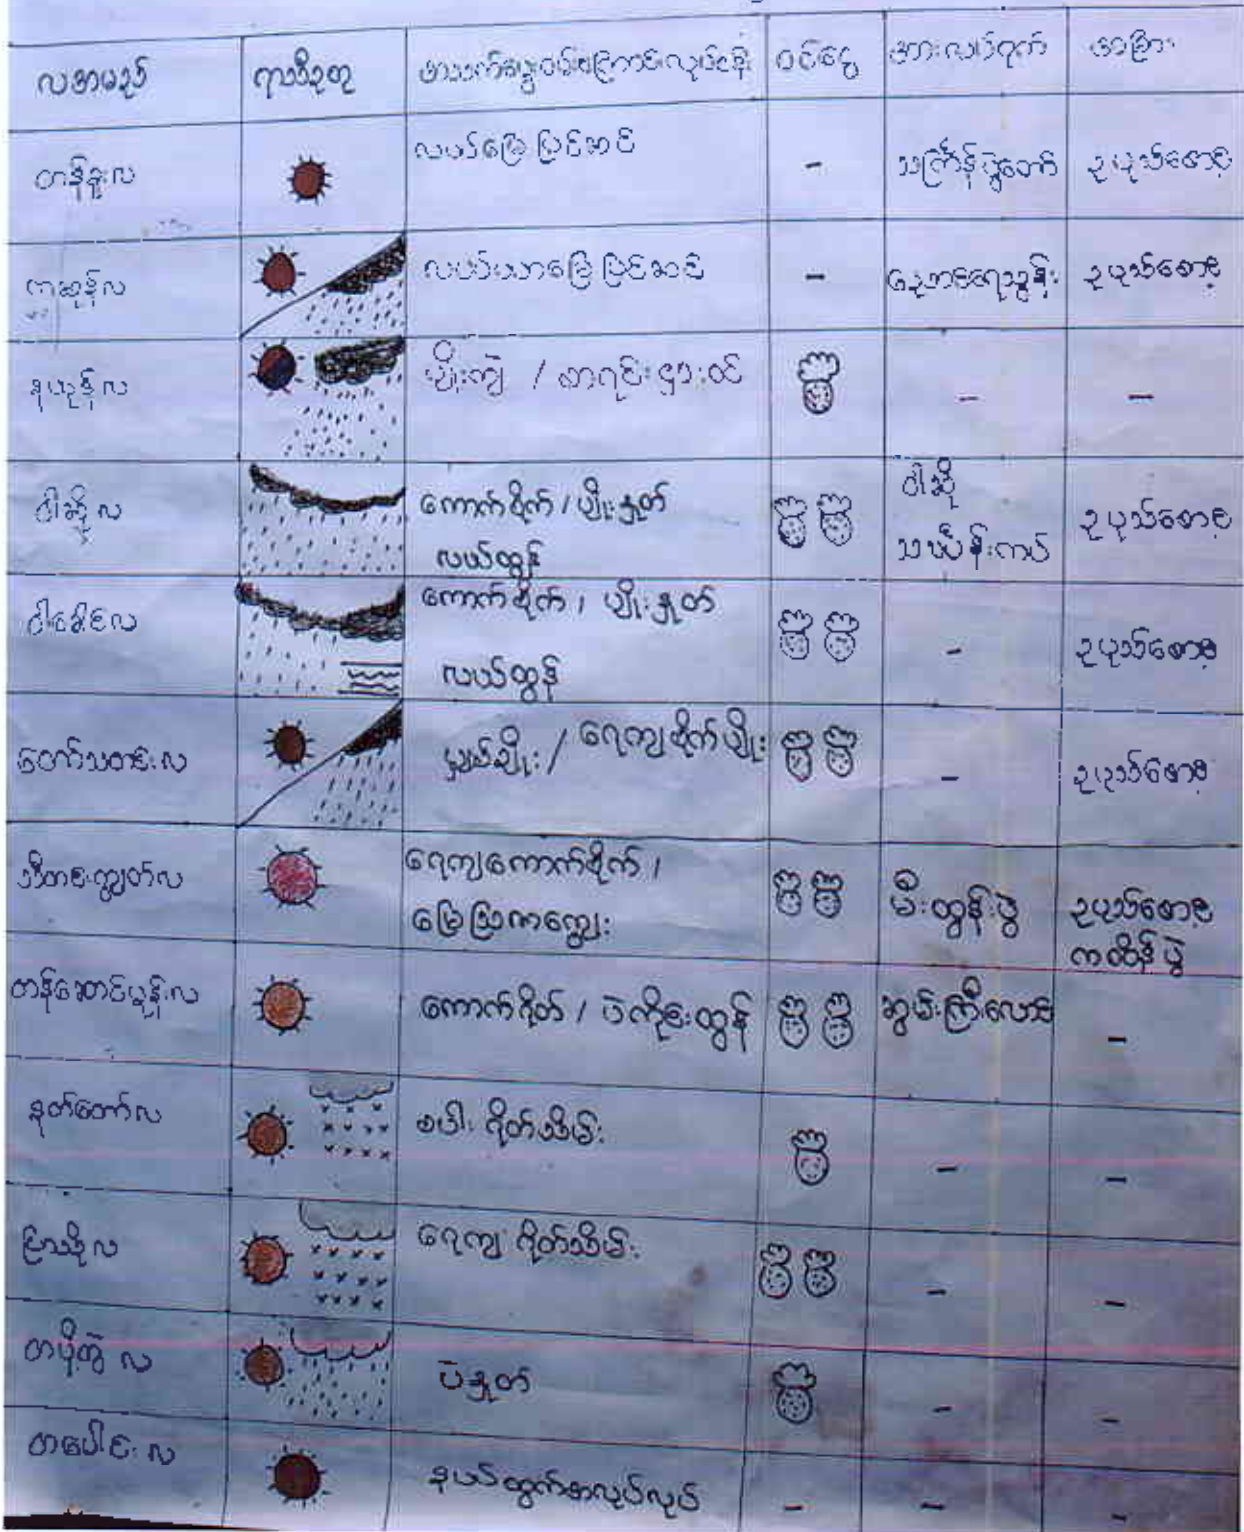 လအမည် ရာသီဥတု အသက်မွေးဝမ်းကြောင်းလုပ်ငန်း ဝင်ငွေ အားလပ်ရက် အခြား
တန်ခူးလ လယ်မြေပြင်ဆင် - သင်္ကြန်ပွဲတော် ဥပုသ်စောင့်
ကဆုန်လ လယ်ယာမြေပြင်ဆင် - ညောင်ရေသွန်း ဥပုသ်စောင့်
နယုန်လ ပျိုးကြဲ / စာရင်းငှားဝင် - -
ဝါဆိုလ ကောက်စိုက် / ပျိုးနှုတ် ဝါဆို ဥပုသ်စောင့်
လယ်ထွန် သင်္ဃန်းကပ်
ဝါခေါင်လ ကောက်စိုက် ၊ ပျိုးနှုတ် - ဥပုသ်စောင့်
လယ်ထွန်
တော်သလင်းလ မျှစ်ချိုး / ရေကျစိုက်ပျိုး - ဥပုသ်စောင့်
သီတင်းကျွတ်လ ရေကျကောက်စိုက် ၊ မီးထွန်းပွဲ ဥပုသ်စောင့်
မြေသြဇာကျွေး ကထိန်ပွဲ
တန်ဆောင်မုန်းလ ကောက်ရိတ် / ပဲကိုင်းထွန် ဆွမ်းကြီးလောင်း -
နတ်တော်လ စပါးရိတ်သိမ်း - -
ပြာသိုလ ရေကျရိတ်သိမ်း - -
တပို့တွဲလ ပဲနှုတ် - -
တပေါင်းလ နယ်ထွက်အလုပ်လုပ် - - -